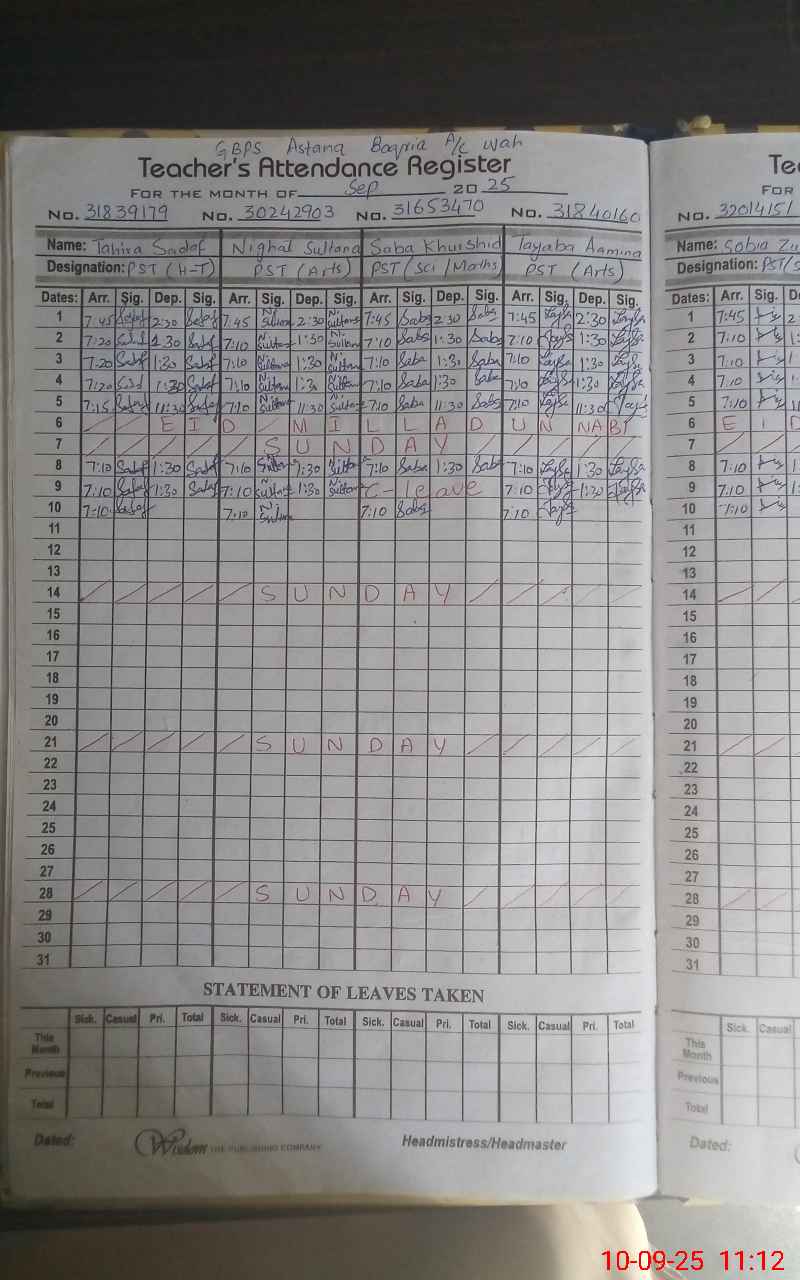 GBPS Astana Baqria A/C Wah
Teacher's Attendance Register
FOR THE MONTH OF Sep 2025
No. 31839179 No. 30242903 No. 31653470 No. 31840160 No. 32014151
Name: Tahira Sadaf Nighat Sultana Saba Khurshid Tayaba Aamina Name: Sobia
Designation: PST (H-T) PST (Arts) PST (Sci / Maths) PST (Arts) Designation: PST
Dates: Arr. Sig. Dep. Sig. Arr. Sig. Dep. Sig. Arr. Sig. Dep. Sig. Arr. Sig. Dep. Sig. Dates: Arr. Sig.
1 7:45 Sadaf 2:30 Sadaf 7:45 N. Sultana 2:30 N. Sultana 7:45 Saba 2:30 Saba 7:45 2:30 1 7:45
2 7:20 Sadaf 1:30 Sadaf 7:10 N. Sultana 1:30 N. Sultana 7:10 Saba 1:30 Saba 7:10 1:30 2 7:10
3 7:20 Sadaf 1:30 Sadaf 7:10 N. Sultana 1:30 N. Sultana 7:10 Saba 1:31 Saba 7:10 1:30 3 7:10
4 7:20 Sadaf 1:30 Sadaf 7:10 N. Sultana 1:30 N. Sultana 7:10 Saba 1:30 Saba 7:10 1:30 4 7:10
5 7:15 Sadaf 11:30 Sadaf 7:10 N. Sultana 11:30 N. Sultana 7:10 Saba 11:30 Saba 7:10 11:30 5 7:10
6 EID MILLAD UN NABI 6 E I D
7 SUNDAY 7
8 7:10 Sadaf 1:30 Sadaf 7:10 Sultana 1:30 Sultana 7:10 Saba 1:30 Saba 7:10 1:30 8 7:10
9 7:10 Sadaf 1:30 Sadaf 7:10 Sultana 1:30 Sultana C-leave 7:10 1:30 9 7:10
10 7:10 Sadaf 7:10 N. Sultana 7:10 Saba 7:10 10 7:10
11 11
12 12
13 13
14 SUNDAY 14
15 15
16 16
17 17
18 18
19 19
20 20
21 SUNDAY 21
22 22
23 23
24 24
25 25
26 26
27 27
28 SUNDAY 28
29 29
30 30
31 31
STATEMENT OF LEAVES TAKEN
Sick. Casual Pri. Total Sick. Casual Pri. Total Sick. Casual Pri. Total Sick. Casual Pri. Total Sick. Casual
This Month This Month
Previous Previous
Total Total
Dated: Wisdom THE PUBLISHING COMPANY Headmistress/Headmaster Dated:
10-09-25 11:12